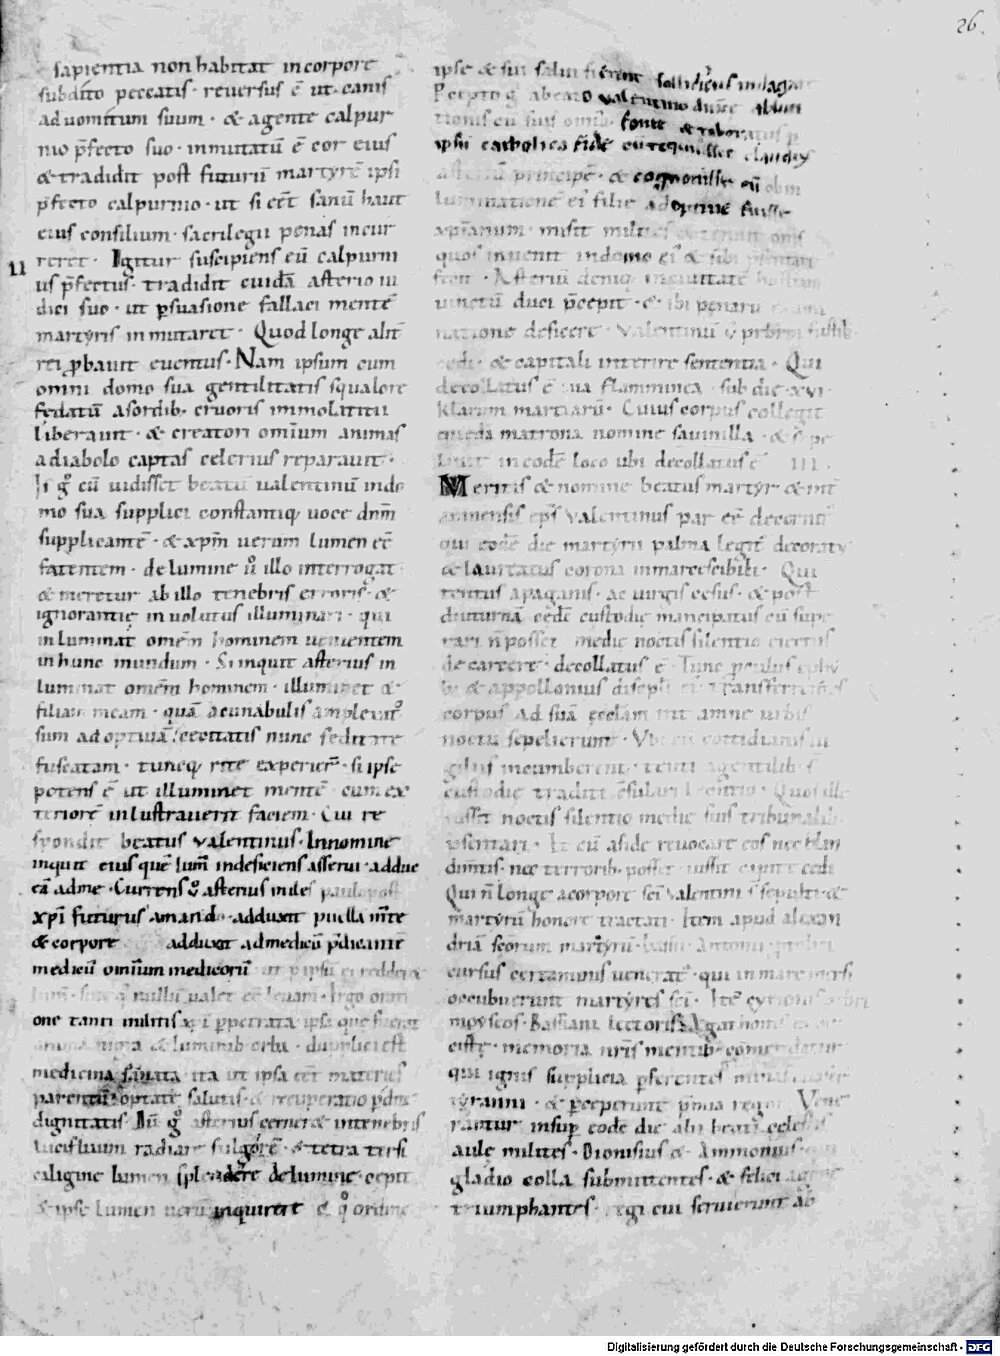 26
sapientia non habitat in corpore
subdito peccatis · reversus ē ut canis
ad vomitum suum · & agente calpur
nio p̄fecto suo · inmutatū ē cor eius
& tradidit post futurū martyrē ipsi
p̄fecto calpurnio · ut si eēt sanū haut
eius consilium · sacrilegii penas incur
reret · Igitur suscipiens eū calpurni
us p̄fectus · tradidit cuidā asterio iu
dici suo · ut ꝑsuasione fallaci mentē
martyris inmutaret · Quod longe alit̄
rei ꝓbavit eventus · Nam ipsum cum
omni domo sua gentilitatis squalore
fędatū a sordib; cruoris immolaticii
liberavit · & creatori omīum animas
a diabolo captas celerius reparavit ·
Is gͦ cū vidisset beatū valentinū indo
mo sua supplici constantiq; voce dnm̄
supplicantē · & xpm̄ verum lumen eē
fatentem · de lumine ū illo interrogat
& meretur ab illo tenebris erroris · &
ignorantię involutus illuminari · qui
inluminat omēm hominem venientem
in hunc mundum · Si inquit asterius in
luminat omēm hominem · illuminet &
filiam meam · quā a cunabulis amplexus
sum adoptivā · cecitatis nunc
fuscatam · tuncq; rite experiar · si ipse
potens ē ut illuminet mentē cum ex
teriorē inlustraverit faciem · Cui re
spondit beatus valentinus · In nomine
inquit eius quē lum̄ indeficiens asserui · adduc
eā ad me · Currens asterius miles paulo post
xpi futurus amando · adduxit puella mente
& corpore adduxit ad medicū p̄dicante
medicū omīum medicorū ut ipsū ei redderet
lum̄ · sine quo nullū valet eē levam · Ergo orati
one tanti militis xpi ꝑpetrata ipsa que fuerat
anima nigra & luminib; orba · duplici est
medicina sanata · ita ut ipsa eēt materies
parentū optatę salutis · & recuperatio ꝑditę
dignitatis · Dū gͦ asterius cerneret in tenebris
lucis suum radiare fulgorē · & tetra tersi
caligine lumen splendere de lumine · cepit
& ipse lumen verū inquirere & qͦ ordine
ipse & sui salvi fierent sollicitius indagare
Percepto gͦ a beato valentino divine ablu
tionis cū suis omīb; fonte & roboratus ꝑ
ipsū catholica fide cū requisisset claudius
asteriū principē · & cognovisse eū ob in
luminatione ei filie adoptive fuisse
xpianum · misit milites & tenuit om̄s
quos invenit in domo ei & sibi p̄sentari
fecit · Asteriū deniq; in civitatē hostiam
vinctū duci p̄cepit · & ibi penarū exami
natione deficere · Valentinū ū prb̄m fustib;
cedi · & capitali interire sententia · Qui
decollatus ē via flamminea · sub die xvi
klarum martiarū · Cuius corpus collegit
quedā matrona nomine savinilla · & sepe
livit in eodē loco ubi decollatus ē · III ·
Meritis & nomine beatus martyr & int
amnensis eps̄ valentinus par eē decernit̄
qui eodē die martyrii palma legit̄ decoratus
& laureatus corona inmarcescibili · Qui
tentus a paganis · ac virgis cesus · & post
diuturnā cędē custodię mancipatus cū supe
rari n̄ posset · medię noctis silentio eiectus
de carcere · decollatus ē · Tunc proculus ephy
bus & appollonius discipli ei transferentes
corpus ad suā ecclam int amne urbis
noctu sepelierunt · Ubi cū cottidianis vi
giliis incumberent · tenti a gentilib; s
custodię traditi ē consulari leontio · Quos ille
iussit noctis silentio medię suis tribunalib;
p̄sentari · Et cū a fide revocare eos nec blan
dim̄tis · nec terrorib; posset iussit capite cedi
Qui n̄ longe a corpore sc̄i valentini s̄ sepulti · &
martyrū honore tractati · Item apud alexan
driā sc̄orum martyrū · bassi · antonii
cursus certaminis venerat̄ · qui in mare mersi
occubuerunt martyres sc̄i · Itē cyrionis prbri
moyseos · Bassiani lectoris & agathonis exorc
cistę · memoria nris mentib; com̄endatur
qui ignis supplicia ꝑferentes minas
tyranni · & p̄ceperunt p̄mia regni · Vene
rantur insup̄ eodē die alii beati celestis
aulę milites · Dionisius & Ammonius · qui
gladio colla submittentes · & felici agone
triumphantes · regi cui servierunt ab
Digitalisierung gefördert durch die Deutsche Forschungsgemeinschaft - DFG